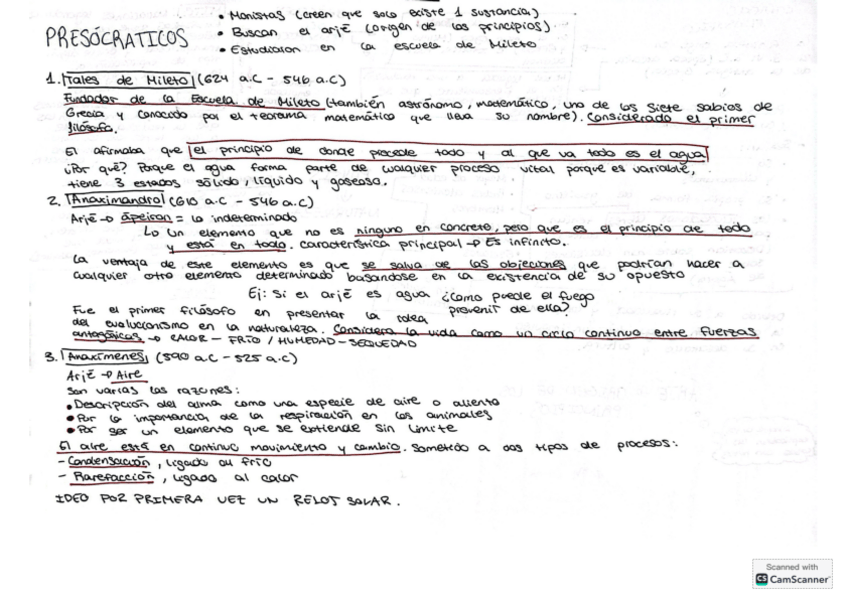 PRESÓCRATICOS
• Monistas (creen que solo existe 1 sustancia)
• Buscan el arjé (origen de los principios)
• Estudiaron en la escuela de Mileto
1. Tales de Mileto (624 a.C - 546 a.C)
Fundador de la Escuela de Mileto (también astrónomo, matemático, uno de los Siete sabios de
Grecia y conocido por el teorema matemático que lleva su nombre). Considerado el primer
filósofo.
El afirmaba que el principio de donde procede todo y al que va todo es el agua
¿Por qué? Porque el agua forma parte de cualquier proceso vital porque es variable,
tiene 3 estados sólido, líquido y gaseoso.
2. Anaximandro (610 a.C - 546 a.C)
Arjé → ápeiron = lo indeterminado
Lo un elemento que no es ninguno en concreto, pero que es el principio de todo
y está en todo. Característica principal → Es infinito.
La ventaja de este elemento es que se salva de las objeciones que podrían hacer a
cualquier otro elemento determinado basandose en la existencia de su opuesto
Ej: Si el arjé es agua ¿Como puede el fuego
provenir de ella?
Fue el primer filósofo en presentar la idea
del evolucionismo en la naturaleza. Considera la vida como un ciclo continuo entre fuerzas
antagónicas → CALOR - FRÍO / HUMEDAD - SEQUEDAD
3. Anaxímenes (590 a.C - 525 a.C)
Arjé → Aire
Son varias las razones:
• Descripción del alma como una especie de aire o aliento
• Por la importancia de la respiración en los animales
• Por ser un elemento que se extiende sin límite
El aire está en continuo movimiento y cambio. Sometido a dos tipos de procesos:
- Condensación, ligado al frío
- Rarefacción, ligado al calor
IDEO POR PRIMERA VEZ UN RELOJ SOLAR.
Scanned with
CS CamScanner